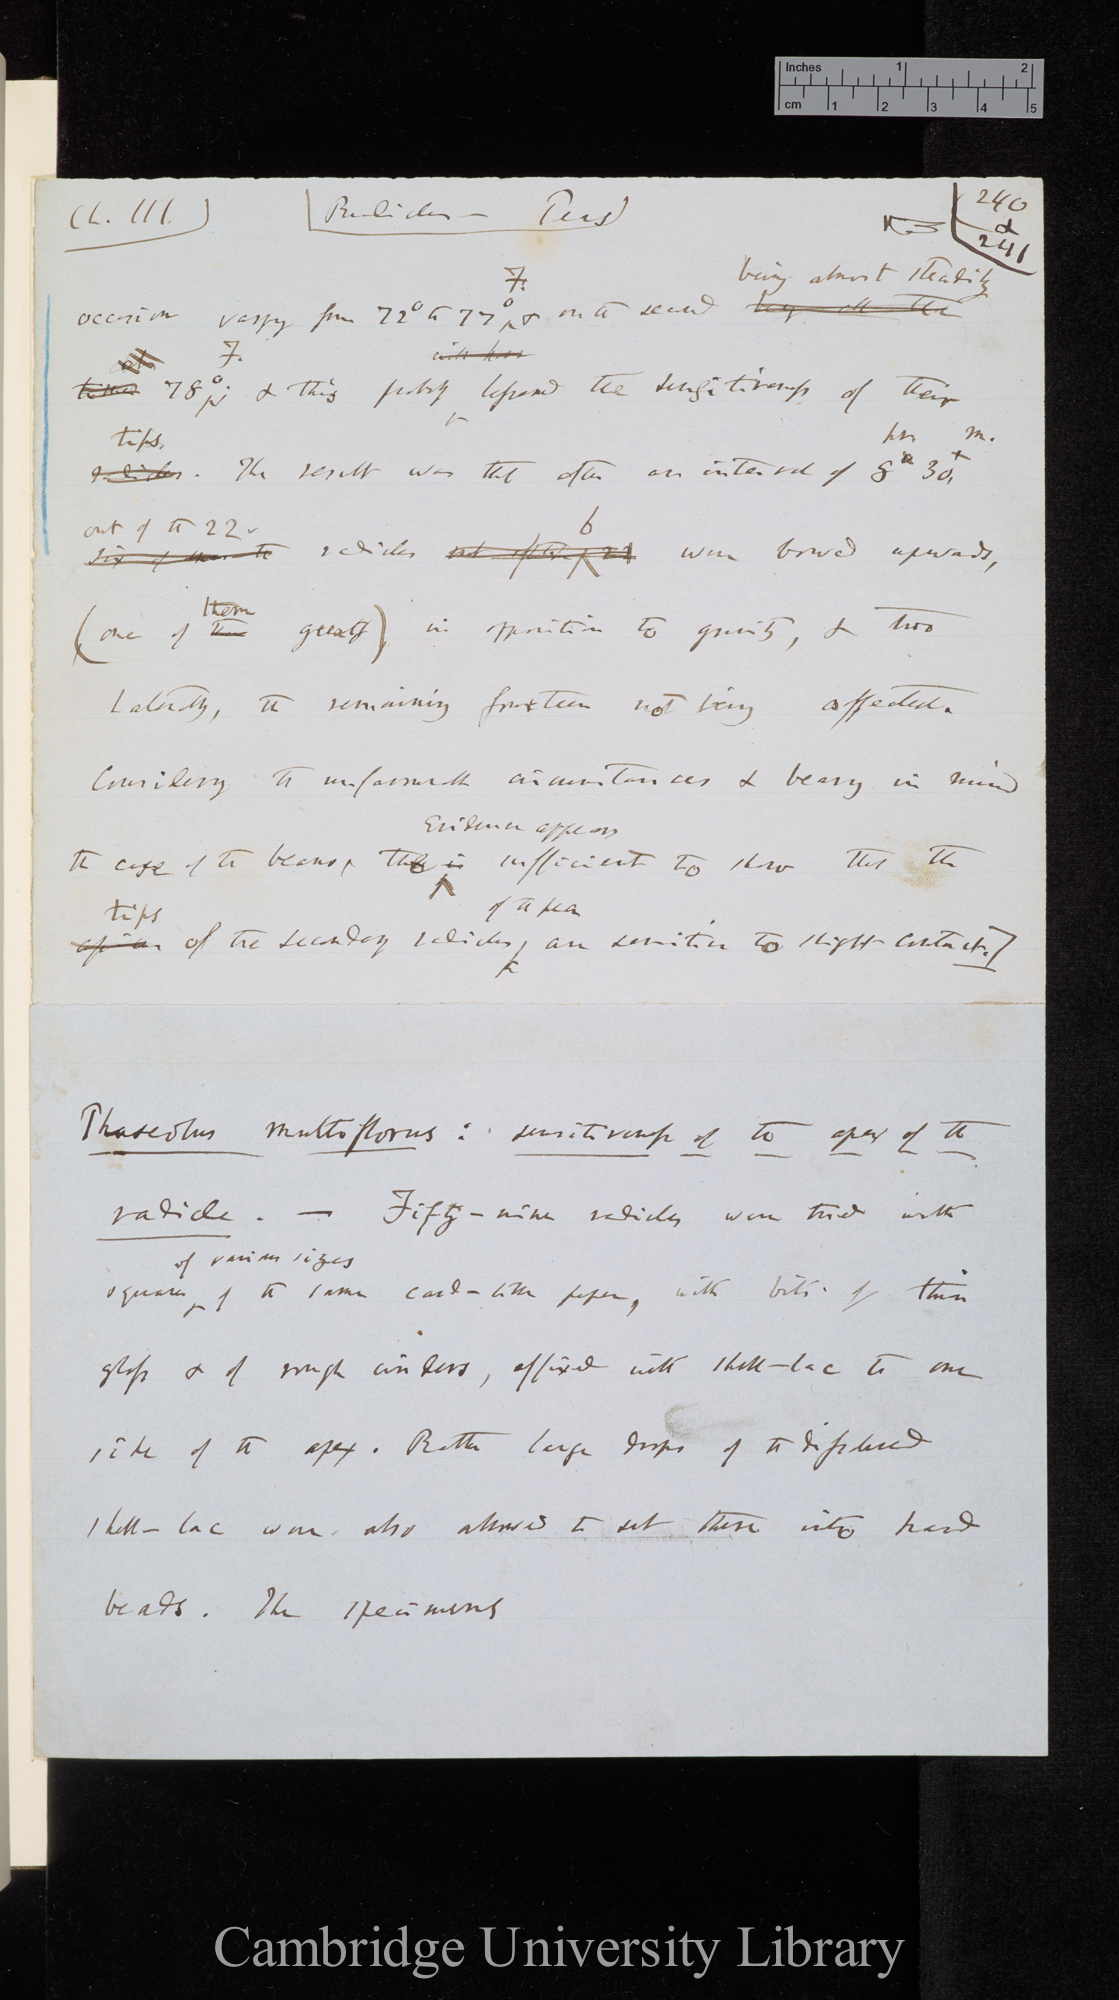 Inches 1 2
cm 1 2 3 4 5
Ch. III.
Radicles — Peas
240
&
241
F. being almost steadily
occasion varying from 72° to 77° & on the second
F.
78°; & this probably lessened the sensitiveness of their
tips. hrs m.
radicles. The result was that after an interval of 8 30,
out of the 22 6
six of these the radicles out of the 21 were bowed upwards,
them
(one of them greatly) in opposition to gravity, & two
laterally, the remaining fourteen not being affected.
Considering the unfavourable circumstances & bearing in mind
Evidence appears
the case of the beans, the is sufficient to show that the
tips of the pea
apices of the secondary radicles, are sensitive to slight contact.]
Phaseolus multiflorus: sensitiveness of the apex of the
radicle. — Fifty-nine radicles were tried with
of various sizes
squares of the same card-like paper, with bits of thin
glass & of rough cinders, affixed with shell-lac to one
side of the apex. Rather large drops of the dissolved
shell-lac were also allowed to set there into hard
beads. The specimens
Cambridge University Library